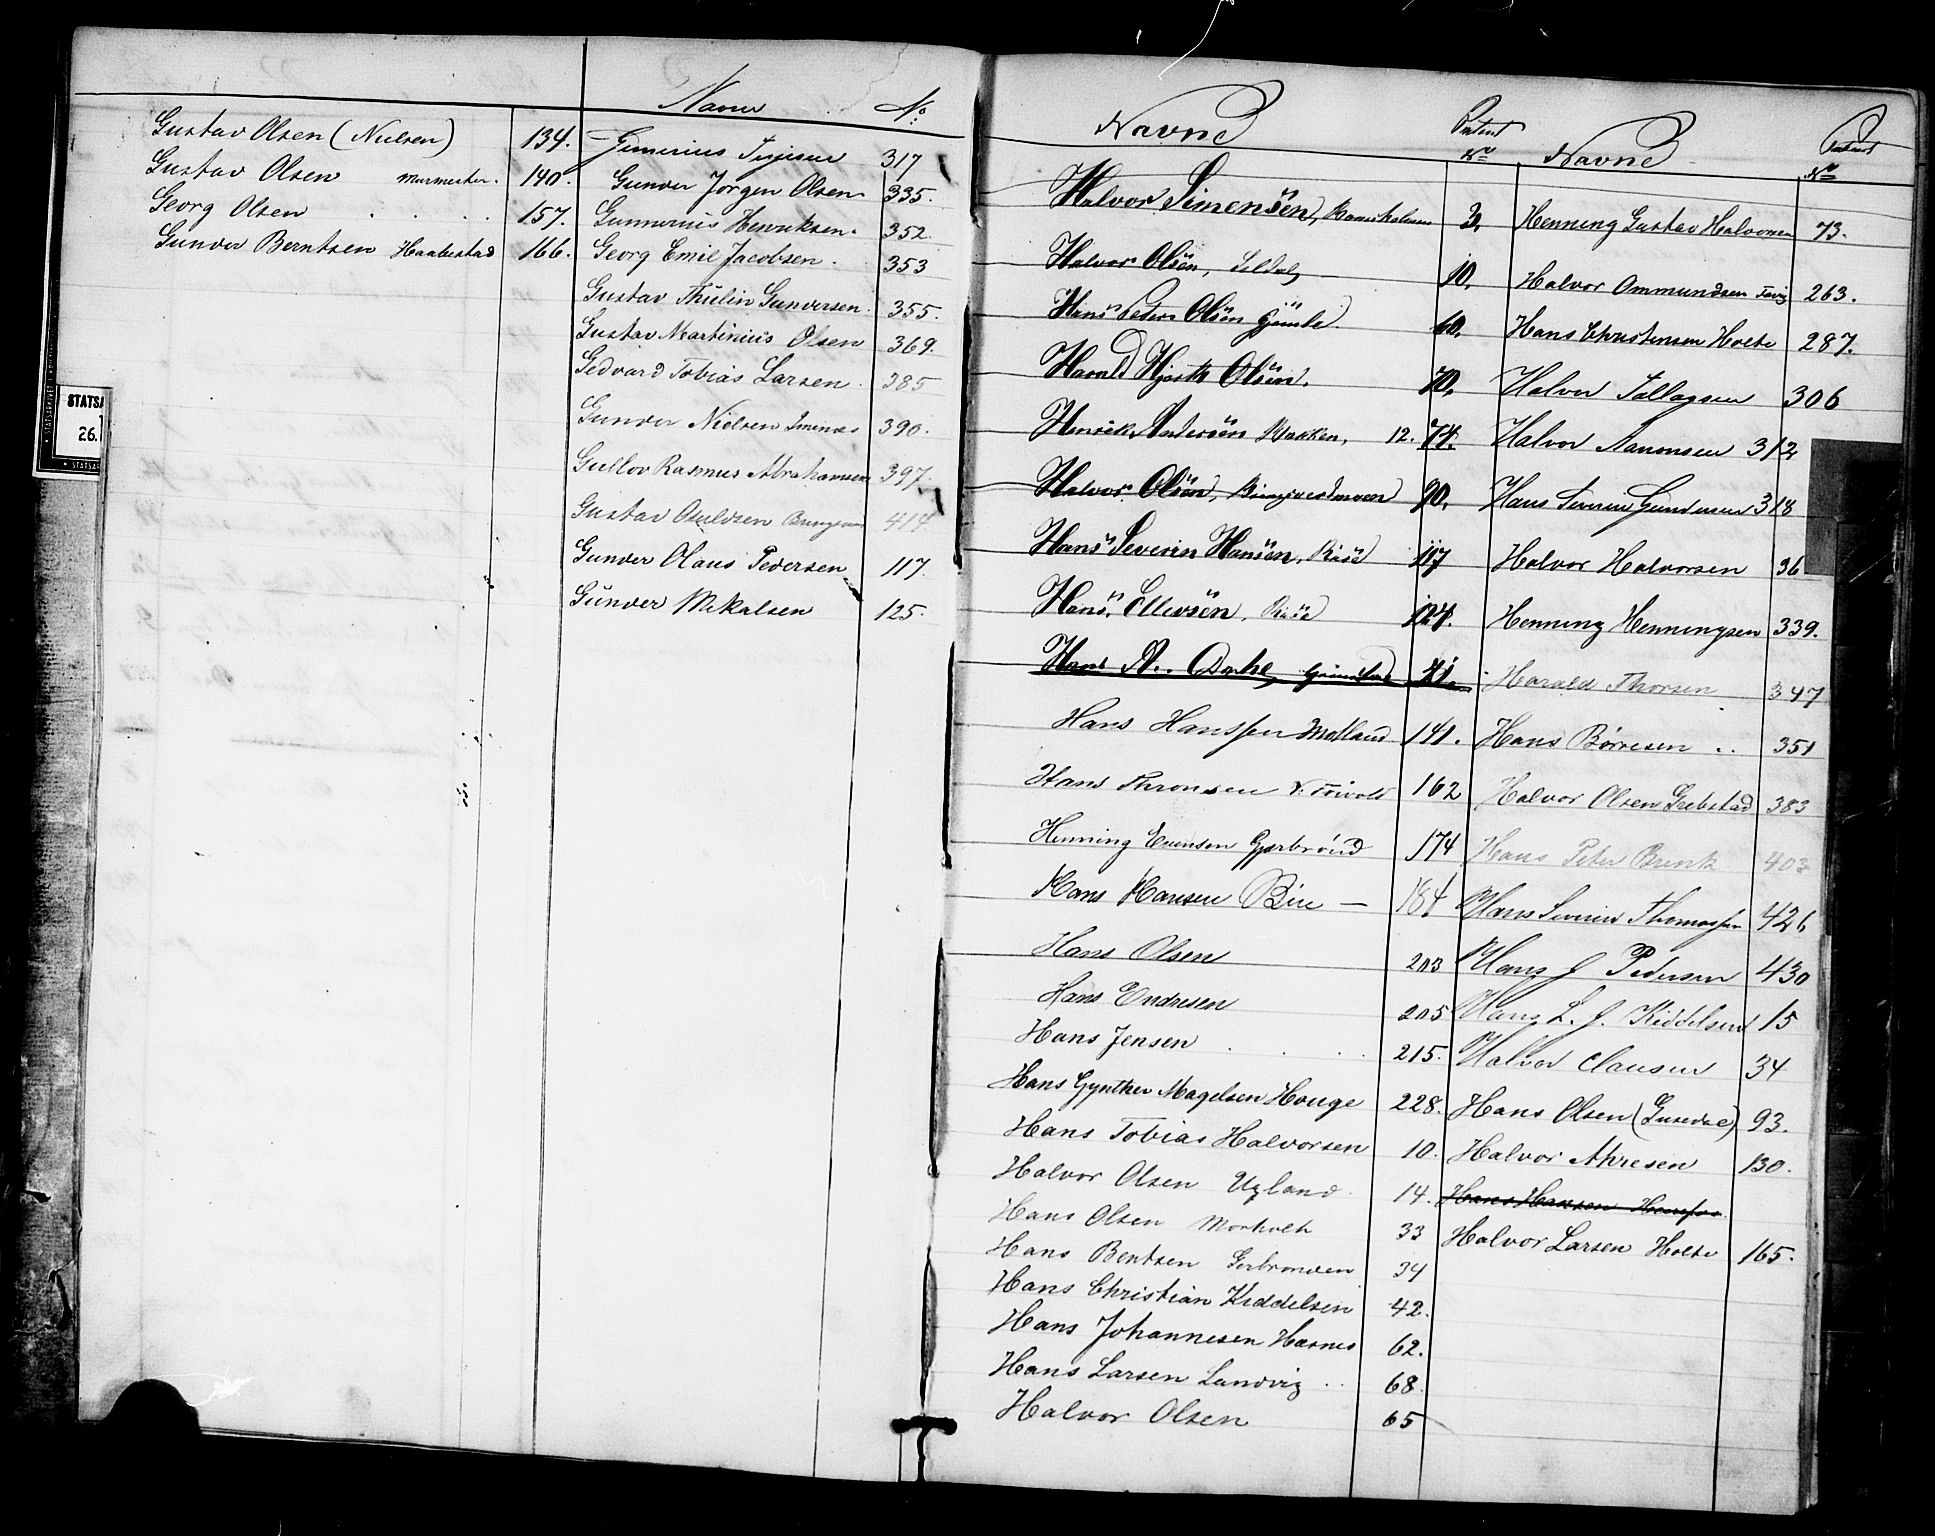 Gustav Olsen (Nielsen) 134.
Gustav Olsen Murmester. 140.
Georg Olsen 157.
Gunder Berntsen Haabestad 166.
Navne No
317
Gunder Jørgen Olsen 335.
Gunnerius Henriksen. 352.
Georg Emil Jacobsen. 353
Gustav Thulin Gundersen. 355.
Gustav Martinius Olsen 369.
Gedvard Tobias Larsen. 385
Gunder Nielsen Imenæs 390.
Gullov Rasmus Abrahamsen 397.
Gustav Osuldsen 414
Gunder Olaus Pedersen 117.
Gunder Mikalsen 125.
STATSA
26.
STATSAR
Navne Patent No
Halvor Simensen, 3.
Halvor Olsen, 10.
Hans Peder Olsen 60.
Harald Hjorth Olsen. 70.
Henrik Andersen Bakken, 12. 74.
Halvor Olsen, 90.
Hans Severin Hansen, Risø 117
Hans Ellevsen, Risø 124.
Hans A. Dahl, Grimstad 21.
Hans Hanssen Molland 141.
Hans Thronsen 162
Henning Evensen Gjerbrönd 174
Hans Hansen Bie — 184
Hans Olsen 203
Hans Endresen 205
Hans Jensen 215.
Hans Gynther Magelsen Houge 228.
Hans Tobias Halvorsen 10.
Halvor Olsen Ugland 14.
Hans Olsen Morholt 33
Hans Bentsen Gerbronden 34
Hans Christian Kiddelsen 42.
Hans Johannesen Hasnes 62.
Hans Larsen Landvig 68.
Halvor Olsen 65
Navne Patent No
Henning Gustav Halvorsen 73.
Halvor Ommundsen 263.
Hans Christensen Holte 287.
Halvor Tallagsen 306
Halvor Aanonsen 312
Hans Severin Gundersen 318
Halvor Halvorsen 36
Henning Henningsen 339.
Harald Thorsen 347
Hans Børresen 351
Halvor Olsen Grebstad 383
Hans Peter Brink 403
Hans Severin Thomassen 426
Hans J Pedersen 430
Hans L. J. Kiddelsen 15
Halvor Clausen 34
Hans Olsen (Gusedal) 93.
Halvor Ahresen 130.
Hans Hansen
Halvor Larsen Holte 165.